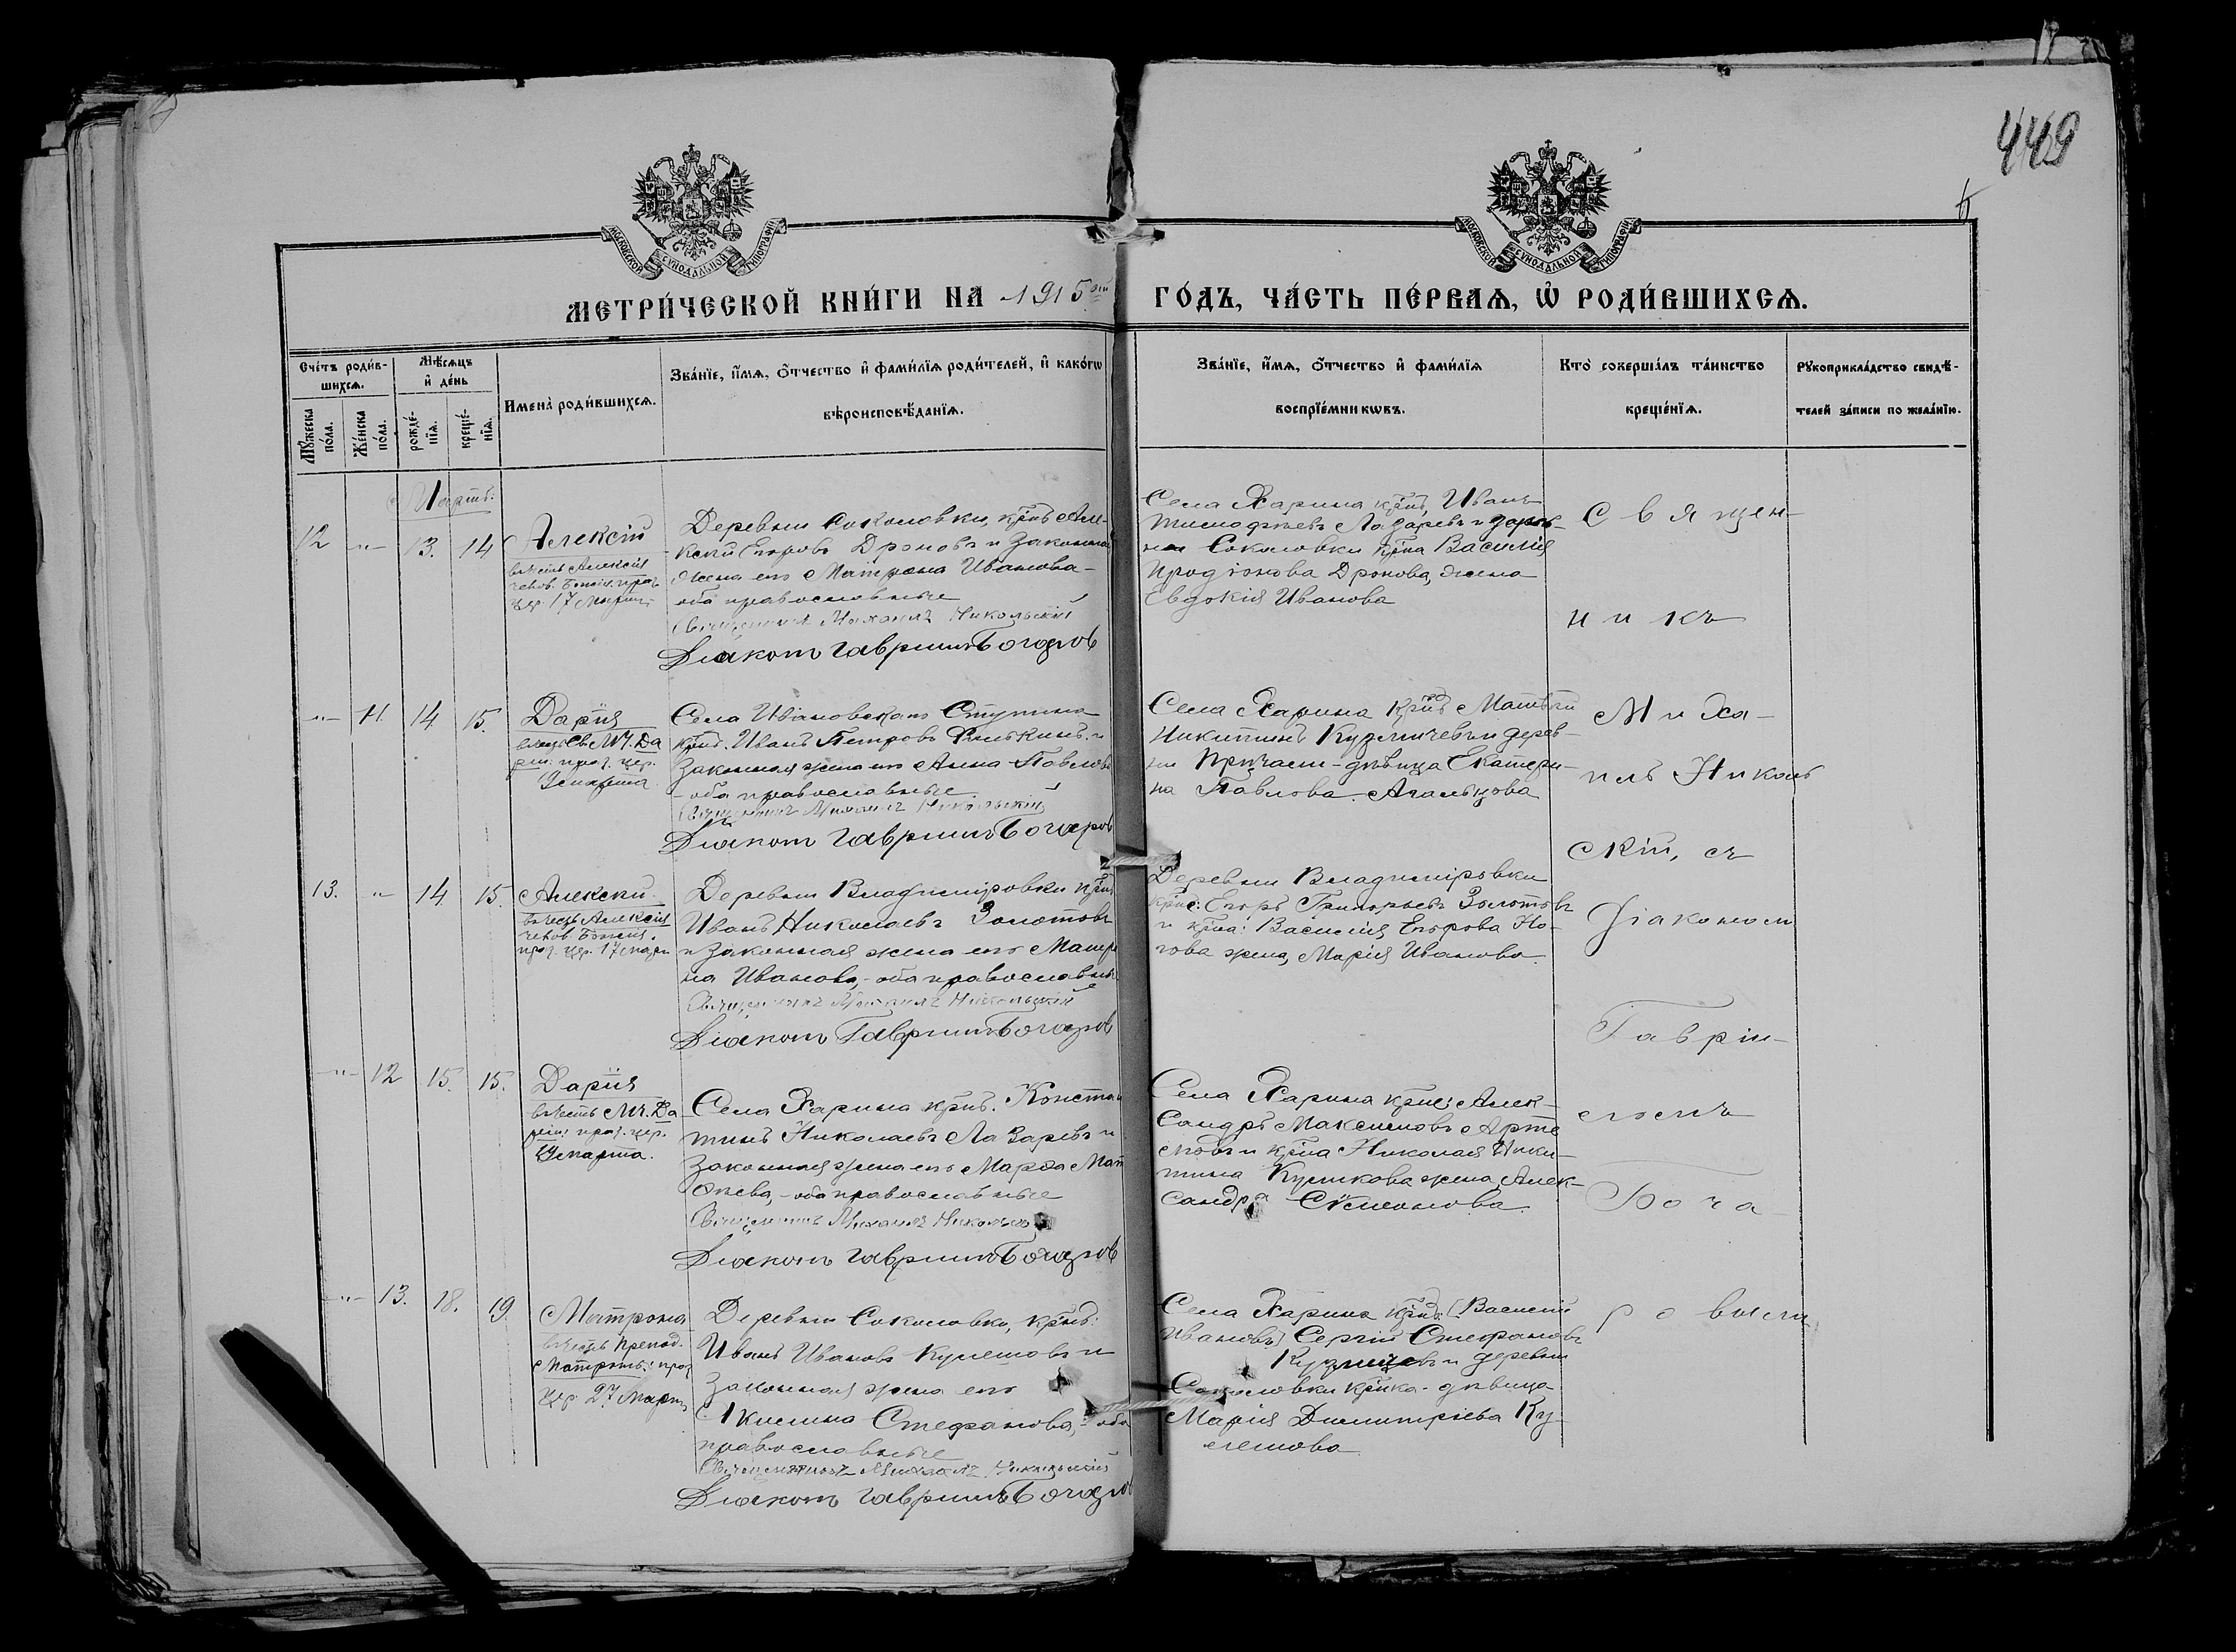 449
МОСКОВСКОЙ СѴНОДАЛЬНОЙ ТИПОГРАФІИ
МОСКОВСКОЙ СѴНОДАЛЬНОЙ ТИПОГРАФІИ
МЕТРИ́ЧЕСКОЙ КНИ́ГИ НА 1915ый ГО́ДЪ, ЧА́СТЬ ПЕ́РВАѦ, Ѡ҆ РОДИ́ВШИХСѦ.
Сче́тъ роди́в-
шихсѧ.
Мꙋ́жеска по́ла.
Же́нска по́ла.
Мѣ́сѧцъ и҆ де́нь
рожде́-нїѧ.
креще́-нїѧ.
Имена̀ роди́вшихсѧ.
Зва́нїе, и҆́мѧ, ѻ҆́тчество и҆ фами́лїѧ роди́телей, и҆ како́гѡ
вѣроисповѣ́данїѧ.
Зва́нїе, и҆́мѧ, ѻ҆́тчество и҆ фами́лїѧ
воспрїе́мникѡвъ.
Кто̀ соверша́лъ та́инство
креще́нїѧ.
Рꙋкоприкла́дство свидѣ́-
телей за́писи по жела́нїю.
Мартъ:
12 -"- 13. 14 Алексій
въ честь Алексія
челов. Божія, праз.
17 Марта
Деревни Соколовки, крнъ Але-
ксій Егоровъ Дроновъ и законная
жена его Матрона Иванова-
оба православные
Священникъ Михаилъ Никольскій
Діаконъ Гавріилъ Бочаров
Села Харина крнъ Иванъ
Тимофеевъ Лазаревъ и дерев-
ни Соколовки крна Василія
Продіонова Дронова жена
Евдокія Иванова
-"- 11. 14 15. Дарія
въ честь Св. Мч. Да
ріи: праз. цер.
Села Ивановскаго Ступина
крнъ. Иванъ Петровъ и
законная жена его Анна Павлова
- оба православные
Священникъ Михаилъ Никольскій
Діаконъ Гавріилъ Бочаров
Села Харина крнъ Матвей
Никитинъ Кузмичевъ и дерев-
ни девица Екатери-
на Павлова
13. -"- 14 15. Алексій
въ честь Алексія
челов. Божія.
праз. цер. 17 марта
Деревни Владиміровки крнъ
Иванъ Николаевъ Золотовъ
и законная жена его Матро
на Иванова, - оба православные
Священникъ Михаилъ Никольскій
Діаконъ Гавріилъ Бочаров
Деревни Владиміровки
крнъ: Егоръ Григорьевъ Золотовъ
и крна: Василія Егорова Но-
гова жена, Марія Иванова
-"- 12 15. 15. Дарія
въ честь Мч. Да
ріи: праз. цер.
Села Харина крнъ. Констан
тинъ Николаевъ Лазаревъ и
законная жена его Марфа Мат
феева, - оба православные
Священникъ Михаилъ Никольскій
Діаконъ Гавріилъ Бочаров
Села Харина крнъ: Алек-
сандръ Максимовъ Арте
мовъ и крна Николая Ники-
тина Куликова жена, Алек-
сандра Семенова
-"- 13. 18. 19. Матрона
въ честь Препод.
Матроны: праз
цер 27 Марта
Деревни Соколовки, крнъ:
Иванъ Ивановъ Кулешовъ и
законная жена его
Акилина Стефанова, - оба
православные
Священникъ Михаилъ Никольскій
Діаконъ Гавріилъ Бочаров
Села Харина крнъ: [Василій
Ивановъ] Сергій Стефановъ
Кузнецовъ и деревни
Соколовки крнка девица
Марія Димитріева Ку-
лешова
Священ-
никъ
Миха-
илъ Николь
скій, съ
діакономъ
Гаврі-
иломъ
Боча-
ровымъ